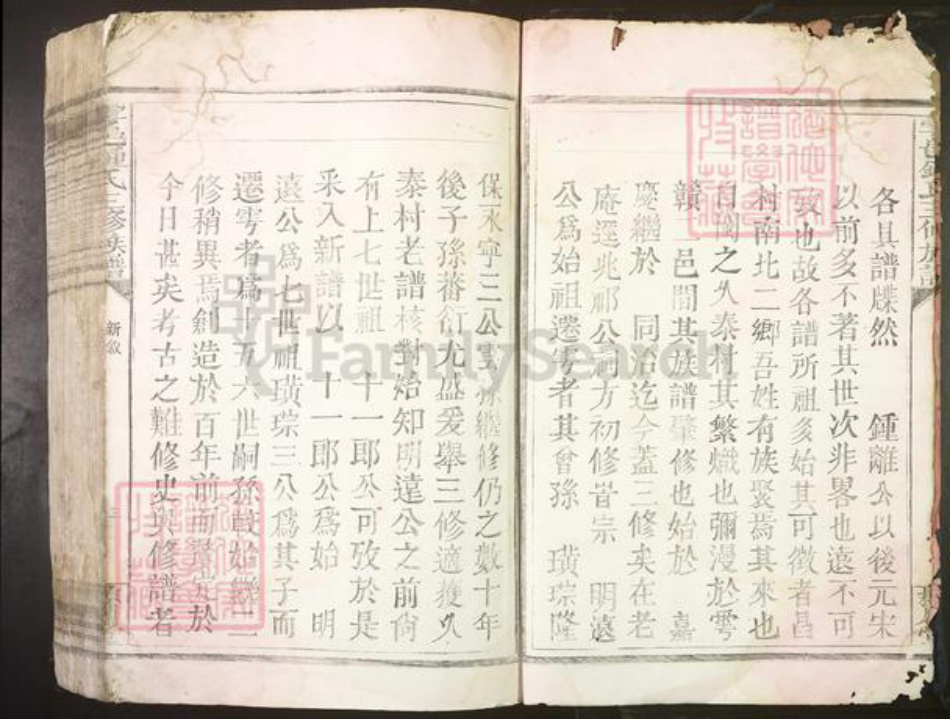 各具譜牒然 鍾離公以後元宋
以前多不著其世次非畧也遠不可
攷也故各譜所祖多始其可徵者昌
村南北二鄉吾姓有族聚焉其來也
自閩之久泰村其繁熾也彌漫於雩
贛二邑間其族譜肇修也始於 嘉
慶繼於 同治迄今蓋三修矣在老
庵逕兆祁公祠方初修皆宗 明遠
公為始祖遷雩者其曾孫 璜琮隆
保永寧三公 孫繼修仍之數十年
後子孫蕃衍尤盛爰舉三修適獲久
泰村老譜核對始知明遠公之前尚
有上七世祖 十一郎公可攷於是
采入新譜以 十一郎公為始 明
遠公為七世祖璜琮三公為其子而
遷雩者為十五六世嗣孫較始繼二
修稍異焉創造於百年前而 定於
今日甚矣考古之難修史與修譜者
氏三修族譜
新敘
FamilySearch